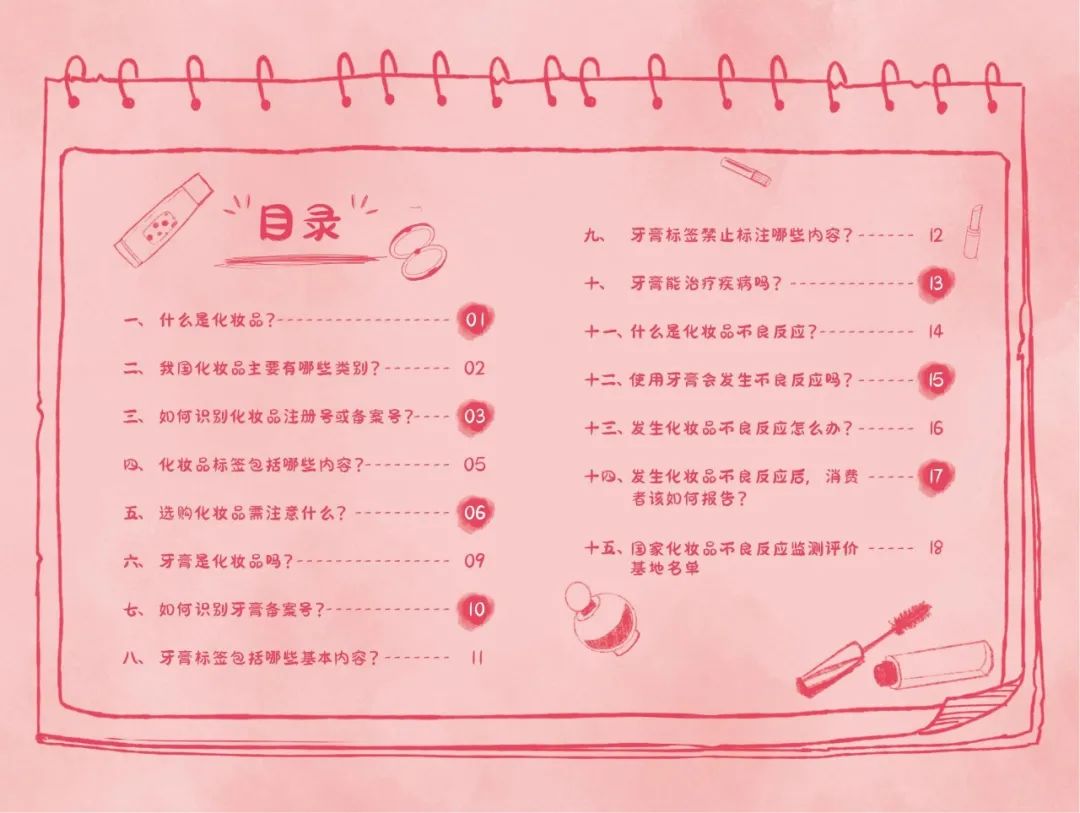 目录
一、 什么是化妆品?--------------------- 01
二、 我国化妆品主要有哪些类别?------- 02
三、 如何识别化妆品注册号或备案号?---- 03
四、 化妆品标签包括哪些内容?--------- 05
五、 选购化妆品需注意什么? ---------- 06
六、 牙膏是化妆品吗?---------------- 09
七、 如何识别牙膏备案号?------------- 10
八、 牙膏标签包括哪些基本内容?------- 11
九、 牙膏标签禁止标注哪些内容?------ 12
十、 牙膏能治疗疾病吗? ------------- 13
十一、什么是化妆品不良反应?---------- 14
十二、使用牙膏会发生不良反应吗?------ 15
十三、发生化妆品不良反应怎么办?------ 16
十四、发生化妆品不良反应后, 消费 ----- 17
者该如何报告?
十五、国家化妆品不良反应监测评价 ----- 18
基地名单